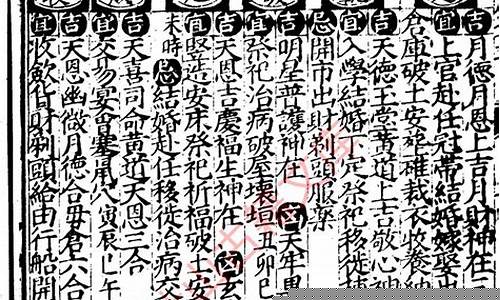 吉月德月恩上吉月財神在
宜上官赴任冠帶結婚嫁娶出
倉庫破土安葬雄裁衣收養納
吉天德玉堂黃道上吉敬心神
宜入學結婚
祭祀移徙
忌開市出財剃頭服藥
吉明星普護神在 凶天牢黑
宜祭祀治病破屋壞垣丑卯巳
吉天恩吉慶福生神在 凶玄
宜豎造安床祭祀祈福破土安
未時 忌結婚赴任移徙治病交
吉天喜司命黃道天恩三合
宜交易宴會塞
寅辰巳午
吉天恩幽微月德合毋倉六合
宜收斂貨財剃頭給由行船開